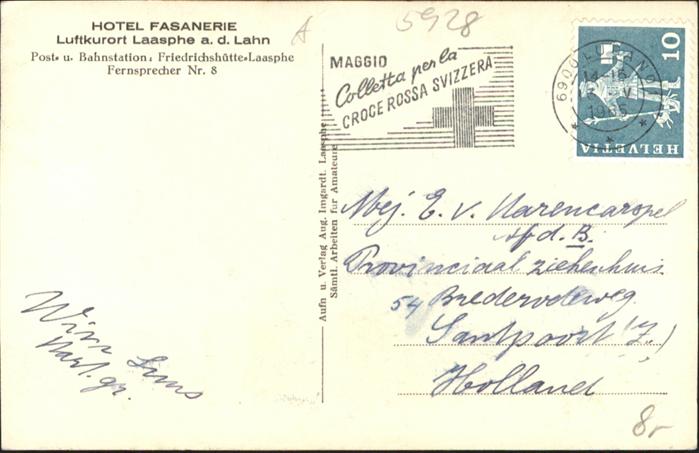 HOTEL FASANERIE
Luftkurort Laasphe a. d. Lahn
Post- u. Bahnstation: Friedrichshütte-Laasphe
Fernsprecher Nr. 8
A
5928
MAGGIO
Colletta per la
CROCE ROSSA SVIZZERA
6900 LUGANO 1
14-15
V
10
HELVETIA
Aufn u. Verlag Aug. Imgardt. Laasphe
Sämtl. Arbeiten für Amateure
Mej. E. v. Marencarspel
Afd. B.
Provinciaal ziekenhuis
54 Brederoodeweg
Santpoort (Z.)
Holland
Wim
Hart. gr.
8,-